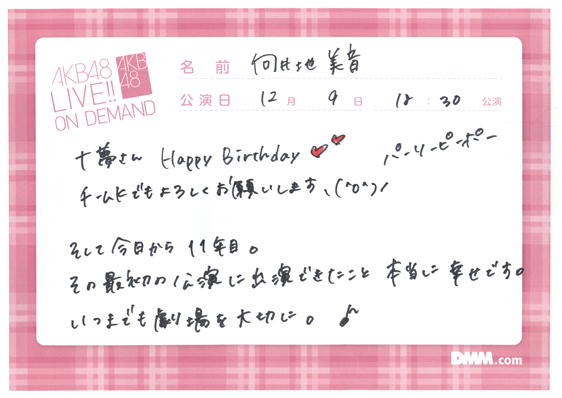 AKB48
LIVE!!
ON DEMAND
AKB
48
名前 向井地 美音
公演日 12月 9日 18:30 公演
十夢さん Happy Birthday パーリーピーポー
チームKでもよろしくお願いします、(^o^)/
そして今日から11年目。
その最初の公演に出演できたこと 本当に幸せです。
いつまでも劇場を大切に。♪
DMM.com